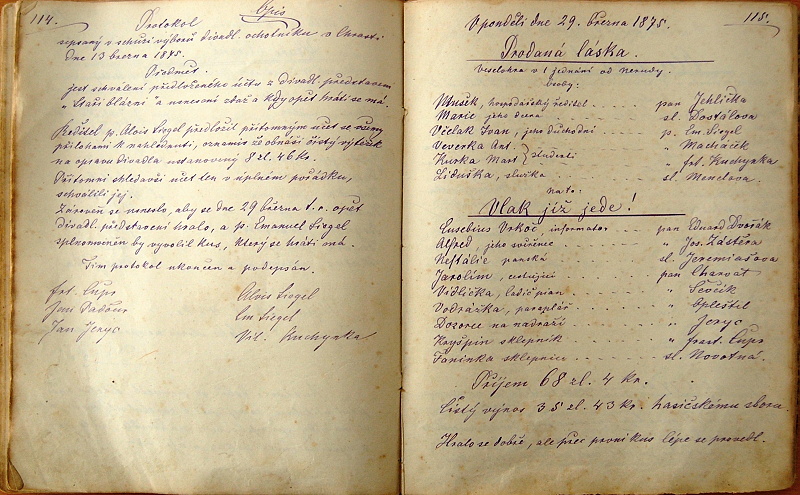 114.
Opis
Protokol
sepsaný v schůzi výboru divadl. ochotníků v Chrasti
dne 13 března 1875.
Předmět.
jest schválení předloženého účtu z divadl. představení
„Staří blázni“ a nanesení zdaž a kdy opět hráti se má.
Ředitel p. Alois Siegel předložil přítomným účet se všemi
přílohami k nahlédnutí, oznámiv že obnáší čistý výtěžek
na opravu divadla ustanovený 8 zl. 46 kr.
Přítomní shledavši účet ten v úplném pořádku,
schválili jej.
Zároveň se uneslo, aby se dne 29 března t. r. opět
divadl. představení hrálo, a p. Emanuel Siegel
splnomocněn by vyvolil kus, který se hráti má.
Tím protokol ukončen a podepsán.
Frt. Cupr Alois Siegel
Jan Dadour Em Siegel
Jan Jeryc Vil. Kuchynka
115.
V pondělí dne 29. března 1875.
Prodaná láska.
Veselohra v 1 jednání od Nerudy.
Osoby:
Mušek, hospodářský ředitel . . . . pan Jehlička
Marie jeho dcera . . . . sl. Dostálova
Včelak Ivan, jeho důchodní . . . . p. Em. Siegel
Veverka Ant. } studenti . . . . " Macháček
Kurka Mart } . . . . " frt. Kuchynka
Liduška, služka . . . . sl. Menclova.
na to:
Vlak již jede!
Eusebius Vrkoč, informator . . . . pan Eduard Dvořák
Alfred, jeho svěřenec . . . . " Jos. Zástěra
Neftálie panská . . . . sl. Jeremiašova
Jarolím, cestující . . . . pan Charvát
Vidlička, ladič pian . . . . " Ševčík
Vodrážka, paraplář . . . . " Opleštil
Dozorce na nádraží . . . . " Jeryc
Kryšpín sklepník . . . . " frant. Cupr
Faninka sklepnice . . . . sl. Novotná.
Příjem 68 zl. 4 kr.
Čistý výnos 35 zl. 43 kr. hasičskému sboru.
Hrálo se dobře, ale přec první kus lépe se provedl.